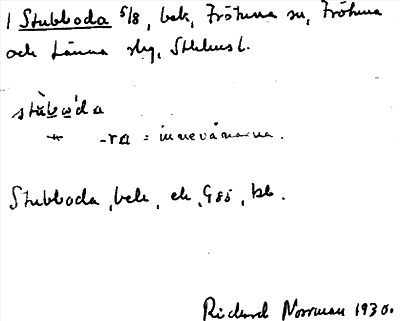 1 Stubboda 5/8, bek, Frötuna sn, Frötuna
och Länna skg, Sthlms l.
stùbω`da
" -ra = innevånarna.
Stubboda, bek, ek, G 55, bl.
Richard Norrman 1930.